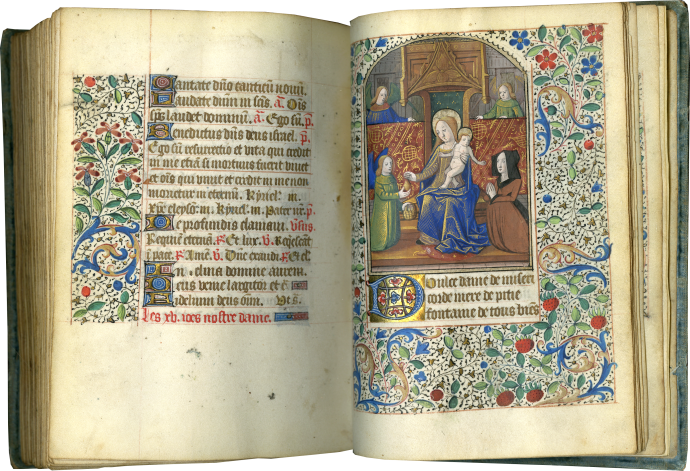 Cantate dño canticũ nouũ.
Laudate dñm ĩ scĩs. a. Oĩs
sp̃s laudet dominũ. a. Ego sũ. p.
Benedictus dñs deus israel. p.
Ego sũ resurrectio et vita qui credit
in me etiã si mortuus fuerit viuet
et oĩs qui viuit et credit in me non
morietur in eternũ. Kyriel.
eleyso Kyriel. Pater nr̃. p.
De profundis clamaui. v̄sus.
Requiẽ eternã. Et lux. v. Requiescãt
ĩ pace. Amẽ. v. Dñe exaudi. Et cl.
Inclina domine aurem.
Deus venie largitor et c̃
Fidelium deus oĩm. Vt s̃.
Les xv. ioes nostre dame.
Doulce dame de miseri
corde mere de pitie
fontaine de tous biẽs